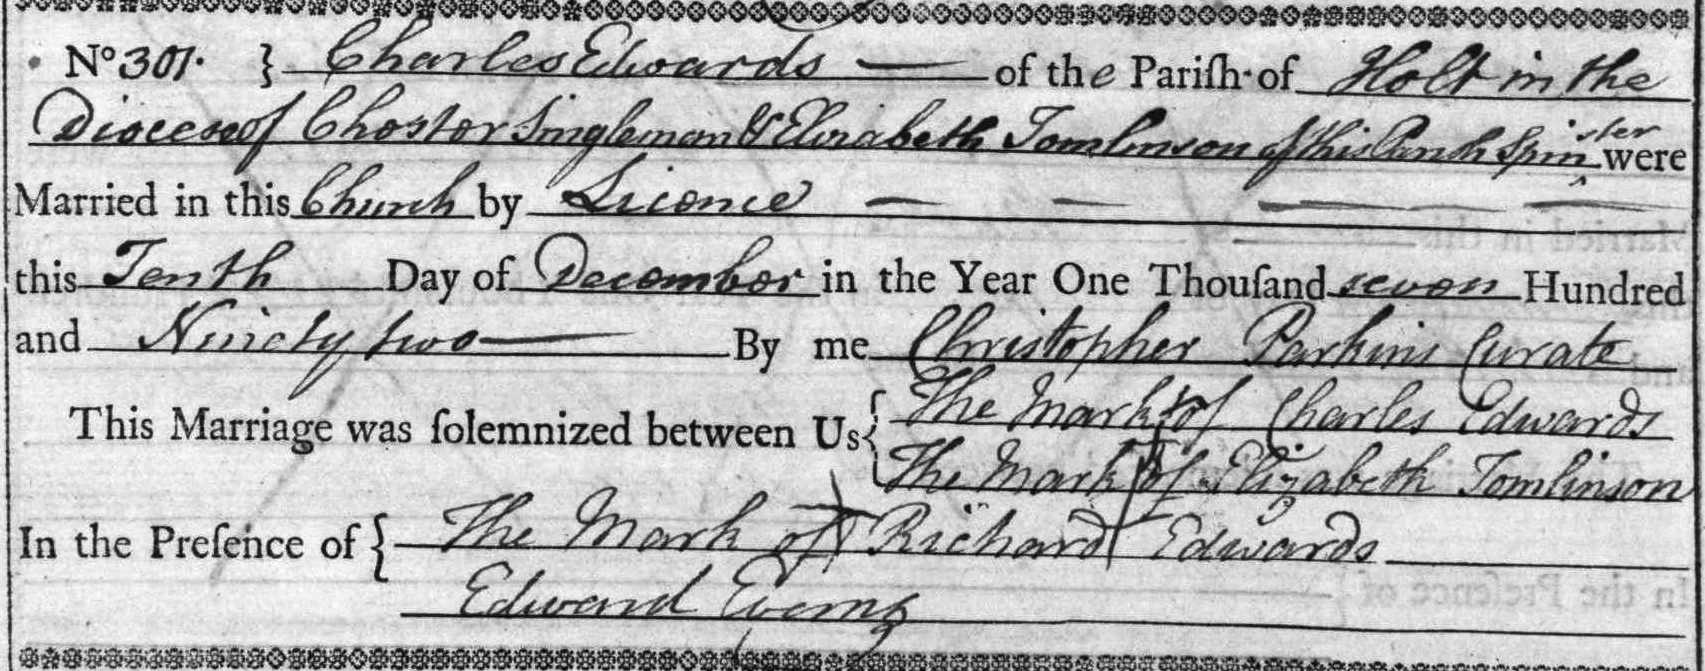 No 301. } Charles Edwards — of the Pariſh of Holt in the
Diocese of Chester Singleman & Elizabeth Tomlinson of this Parish Spinster were
Married in this Church by Licence — — — —
this Tenth Day of December in the Year One Thouſand seven Hundred
and Ninety two — By me Christopher Parkins Curate
This Marriage was ſolemnized between Us { The Mark of Charles Edwards
The Mark of Elizabeth Tomlinson
In the Preſence of { The Mark of Richard Edwards
Edward